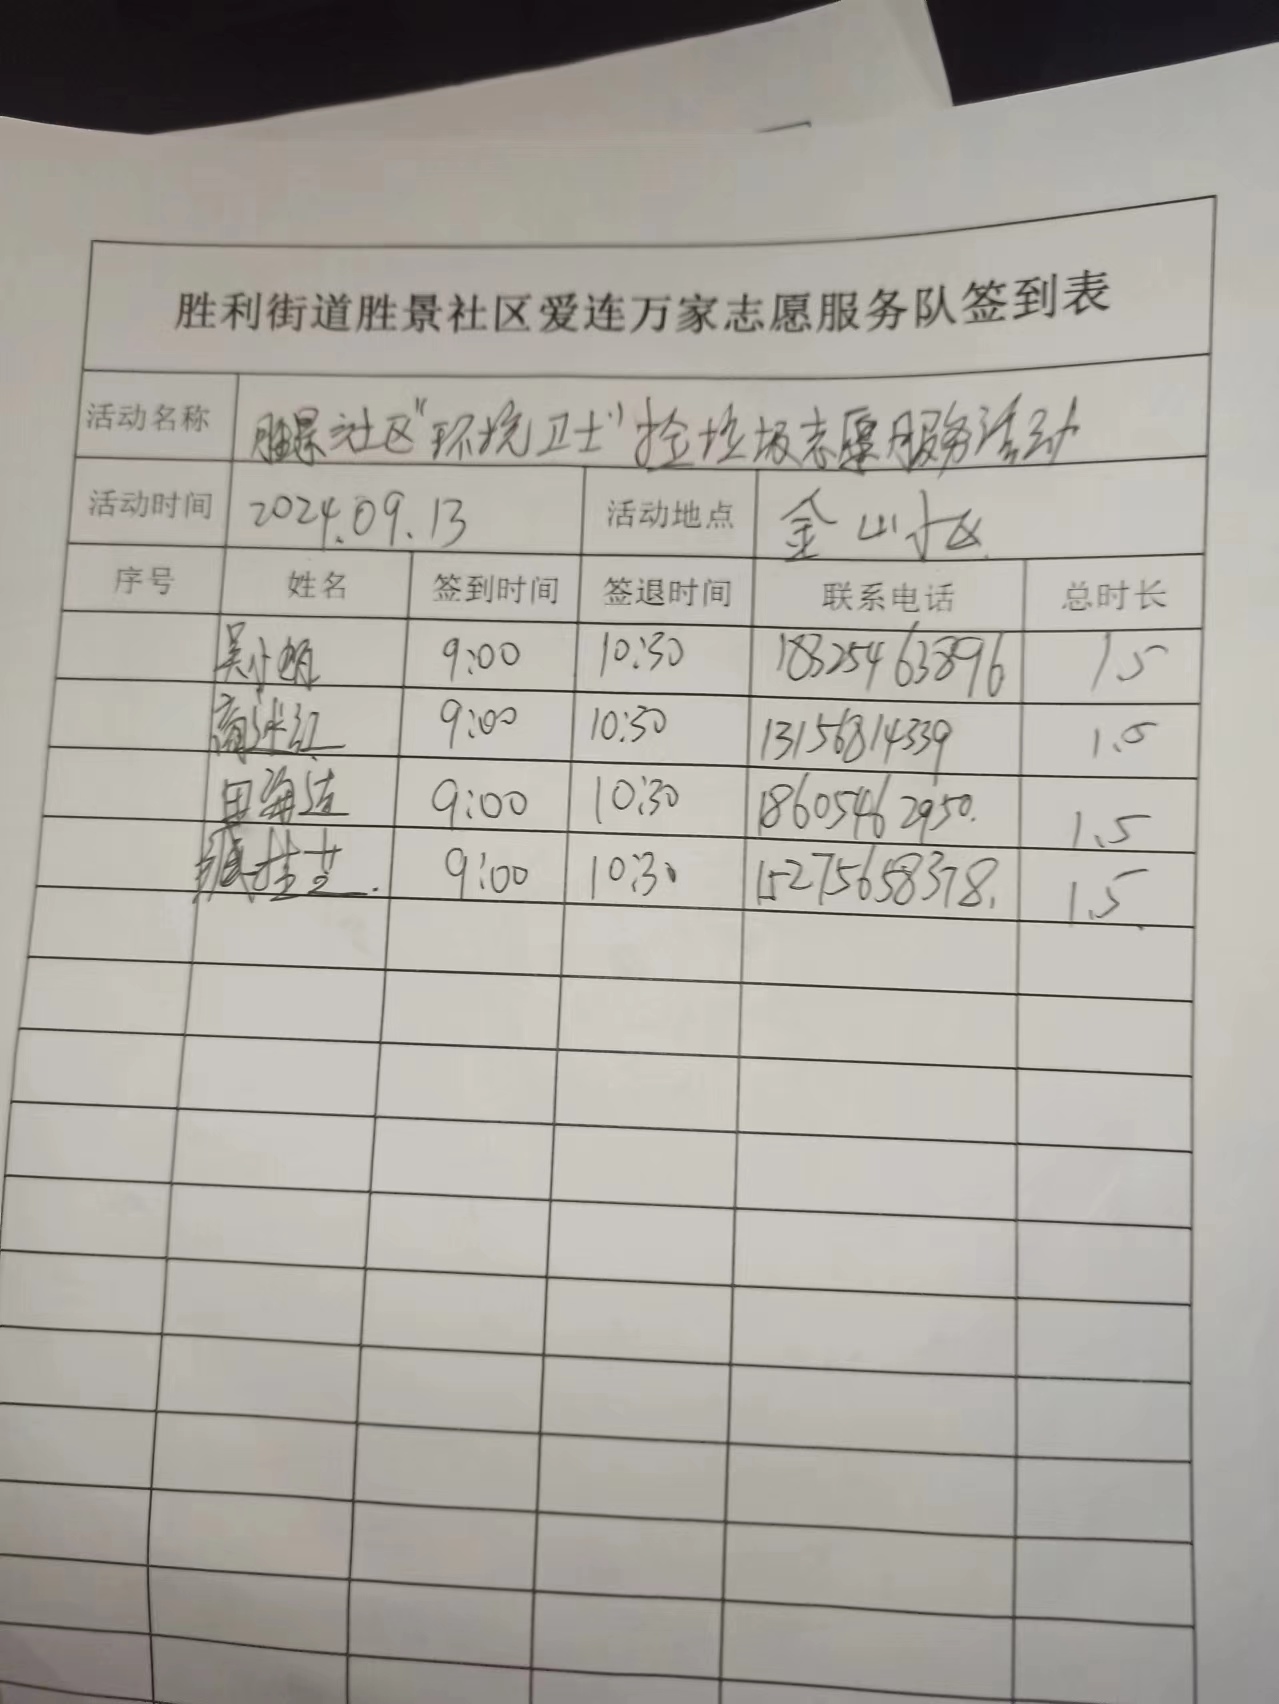 胜利街道胜景社区爱连万家志愿服务队签到表
活动名称 胜景社区"环境卫士"捡垃圾志愿服务活动
活动时间 2024.09.13 活动地点 金山小区
序号 姓名 签到时间 签退时间 联系电话 总时长
吴小娟 9:00 10:30 18325463896 1.5
9:00 10:30 13156814339 1.5
田海洁 9:00 10:30 18605462950. 1.5
9:00 10:30 15275658378. 1.5